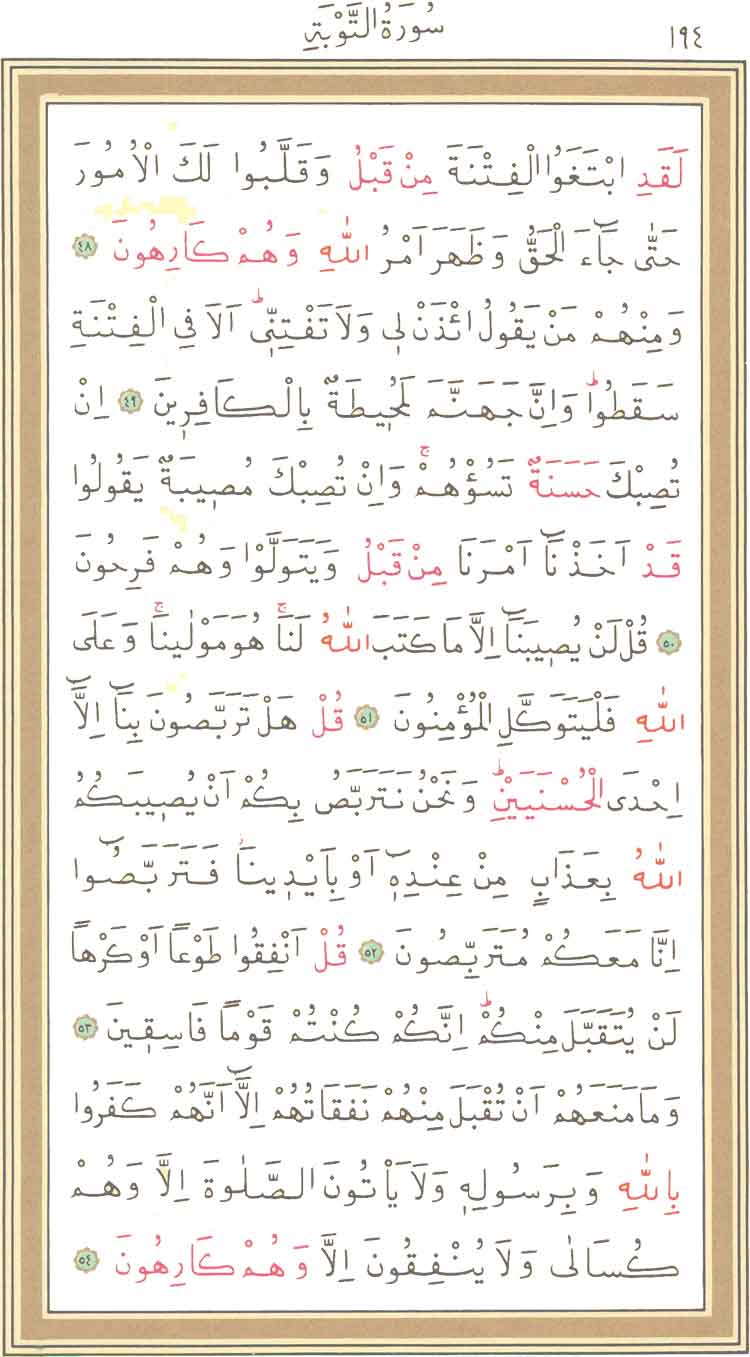 ١٩٤ سُورَةُ التَّوْبَةِ
لَقَدِ ابْتَغَوُا الْفِتْنَةَ مِنْ قَبْلُ وَقَلَّبُوا لَكَ الْاُمُورَ
حَتّٰى جَٓاءَ الْحَقُّ وَظَهَرَ اَمْرُ اللّٰهِ وَهُمْ كَارِهُونَ ٤٨
وَمِنْهُمْ مَنْ يَقُولُ ائْذَنْ لٖى وَلَا تَفْتِنّٖىؕ اَلَا فِى الْفِتْنَةِ
سَقَطُواؕ وَاِنَّ جَهَنَّمَ لَمُحٖيطَةٌ بِالْكَافِرٖينَ ٤٩ اِنْ
تُصِبْكَ حَسَنَةٌ تَسُؤْهُمْۚ وَاِنْ تُصِبْكَ مُصٖيبَةٌ يَقُولُوا
قَدْ اَخَذْنَٓا اَمْرَنَا مِنْ قَبْلُ وَيَتَوَلَّوْا وَهُمْ فَرِحُونَ
٥٠ قُلْ لَنْ يُصٖيبَنَٓا اِلَّا مَا كَتَبَ اللّٰهُ لَنَاۚ هُوَ مَوْلٰينَاۚ وَعَلَى
اللّٰهِ فَلْيَتَوَكَّلِ الْمُؤْمِنُونَ ٥١ قُلْ هَلْ تَرَبَّصُونَ بِنَٓا اِلَّٓا
اِحْدَى الْحُسْنَيَيْنِؕ وَنَحْنُ نَتَرَبَّصُ بِكُمْ اَنْ يُصٖيبَكُمُ
اللّٰهُ بِعَذَابٍ مِنْ عِنْدِهٖٓ اَوْ بِاَيْدٖينَاؗ فَتَرَبَّصُٓوا
اِنَّا مَعَكُمْ مُتَرَبِّصُونَ ٥٢ قُلْ اَنْفِقُوا طَوْعًا اَوْ كَرْهًا
لَنْ يُتَقَبَّلَ مِنْكُمْؕ اِنَّكُمْ كُنْتُمْ قَوْمًا فَاسِقٖينَ ٥٣
وَمَا مَنَعَهُمْ اَنْ تُقْبَلَ مِنْهُمْ نَفَقَاتُهُمْ اِلَّٓا اَنَّهُمْ كَفَرُوا
بِاللّٰهِ وَبِرَسُولِهٖ وَلَا يَاْتُونَ الصَّلٰوةَ اِلَّا وَهُمْ
كُسَالٰى وَلَا يُنْفِقُونَ اِلَّا وَهُمْ كَارِهُونَ ٥٤